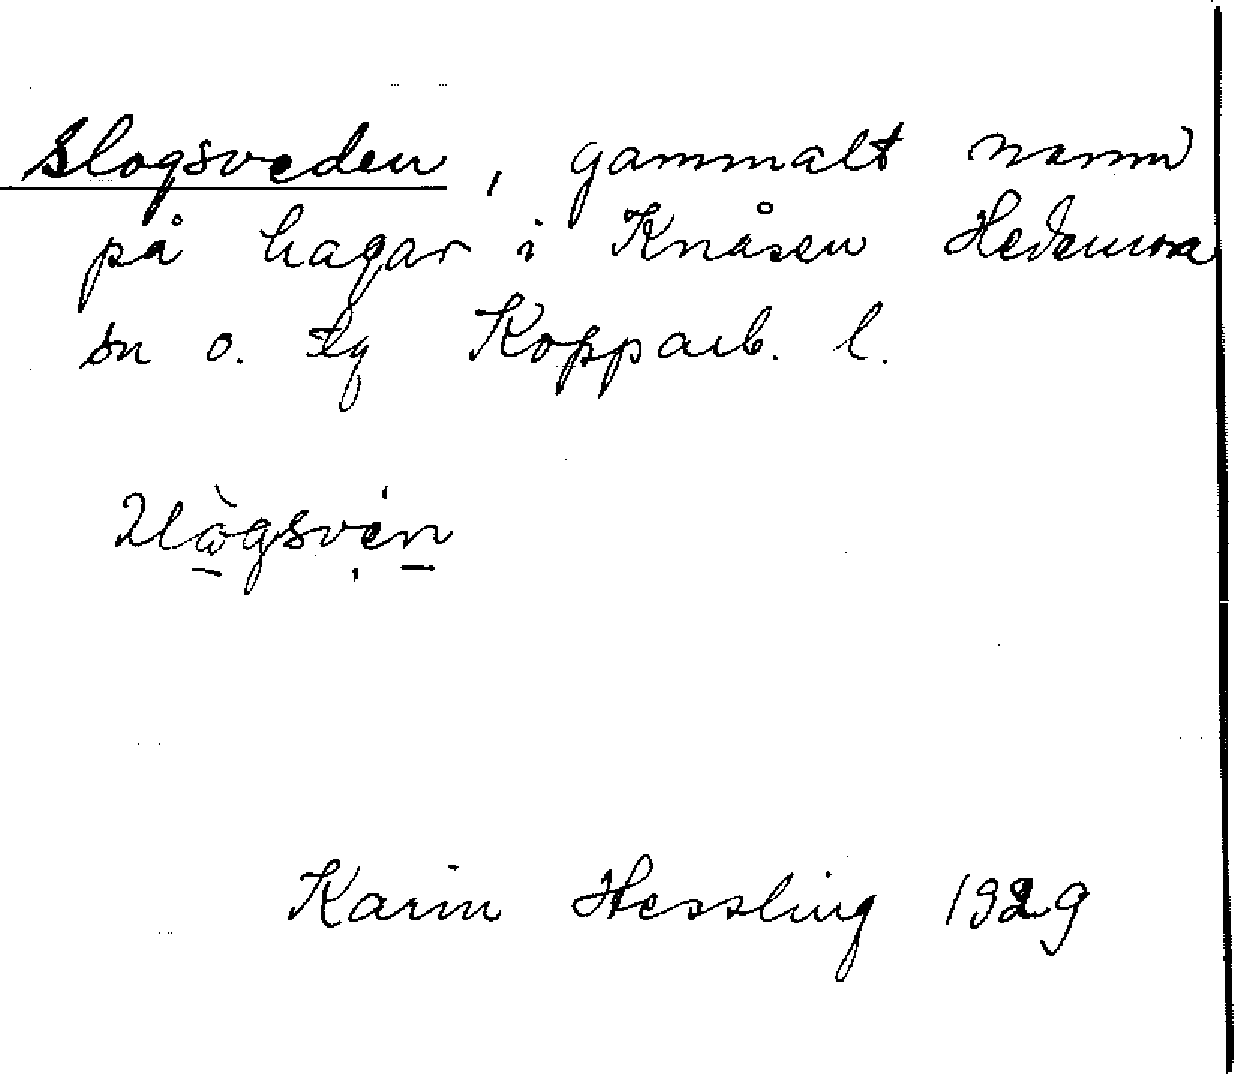 Slogsveden, gammalt namn
på hagar i Knåsen Hedemora
sn o. tlg Kopparb. l.
Karin Hessling 1929